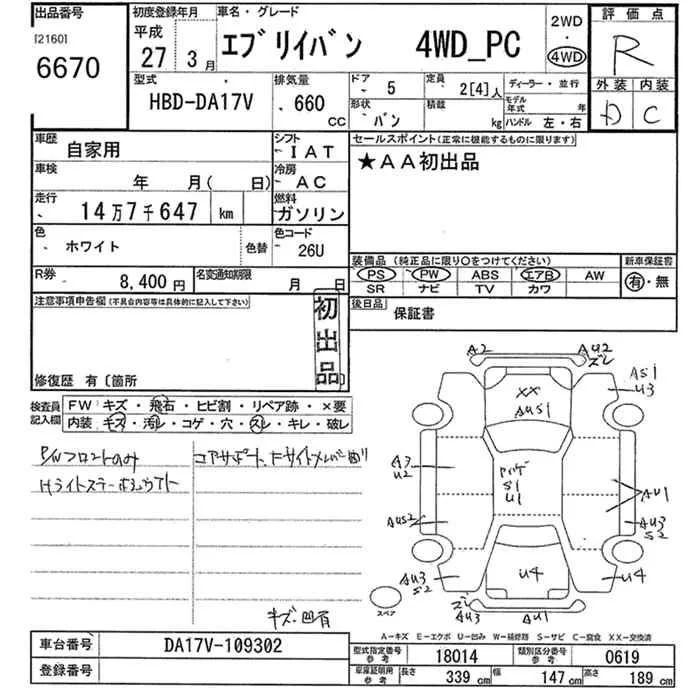 出品番号
[2160]
6670
初度登録年月
平成
27年 3月
車名・グレード
エブリイバン 4WD_PC
2WD
・
4WD
評価点
R
外装 内装
D C
型式
HBD-DA17V
排気量
660 CC
ドア 5
定員 2[4]人
ディーラー・並行
形状 バン
積載 kg
モデル年式 年
ハンドル 左・右
車歴 自家用
シフト IAT
車検 年 月( 日)
冷房 AC
走行 14万7千647 km
燃料 ガソリン
色 ホワイト 色替
色コード 26U
R券 8,400円
名変通知期限 月 日
セールスポイント(正常に機能するものに限ります)
★AA初出品
装備品 (純正品に限り○をつけてください)
PS PW ABS エアB AW
SR ナビ TV カワ
新車保証書
有・無
後日品 保証書
注意事項申告欄(不具合内容等は具体的に記入して下さい)
初出品
修復歴 有〔箇所 〕
検査員記入欄
FW キズ・飛石・ヒビ割・リペア跡・×要
内装 キズ・汚レ・コゲ・穴・スレ・キレ・破レ
P/Wフロントのみ
コアサポート、Fサイドメンバー曲り
Hライトステー
キズ・凹有
A2
AU2
ズレ
AS1
U3
XX
AUS1
A3
U2
パハゲ
S1
U1
AU1
AUS2
AU3
S2
AU3
S2
U4
U4
ズレ
AU3
AU1
スペア
A-キズ E-エクボ U-凹み W-補修跡 S-サビ C-腐食 XX-交換済
車台番号 DA17V-109302
登録番号
型式指定番号 参考 18014
類別区分番号 参考 0619
車庫証明用 参考 長さ 339 cm 幅 147 cm 高さ 189 cm